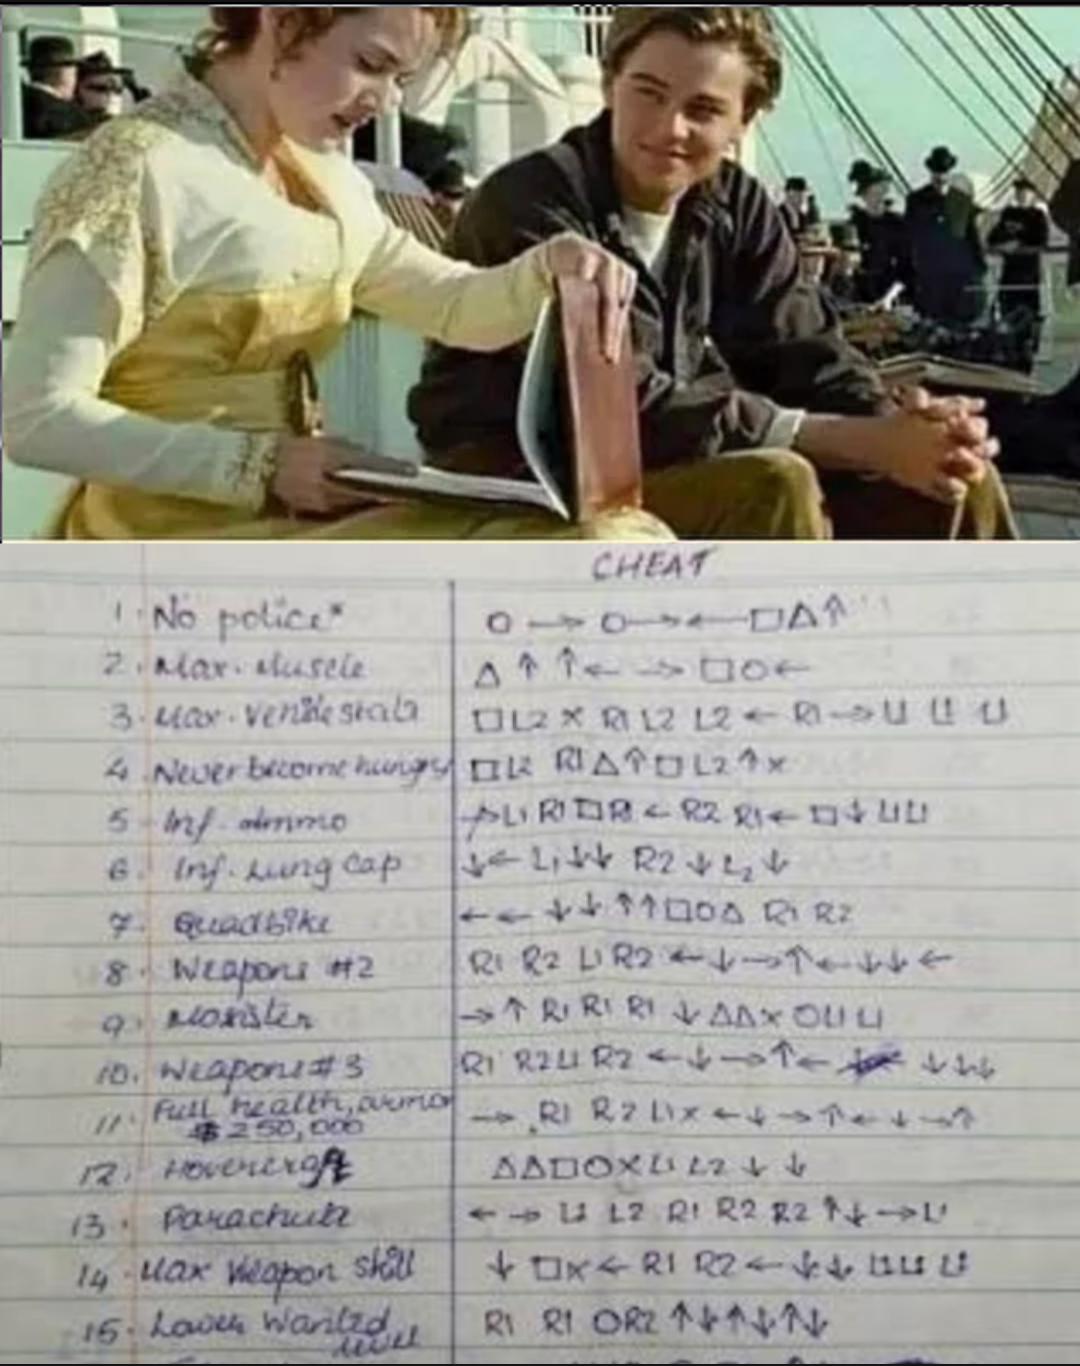 CHEAT
1. No police* O → O → ← □ △ ↑
2. Max. Muscle △ ↑ ↑ ← → □ O ←
3. Max. Vehicle stats □ L2 × R1 L2 L2 ← R1 → L1 L1 L1
4. Never become hungry □ L2 R1 △ ↑ □ L2 ↑ ×
5. Inf. ammo L1 R1 □ R1 ← R2 R1 ← □ ↓ L1 L1
6. Inf. Lung Cap ↓ ← L1 ↓ ↓ R2 ↓ L2 ↓
7. Quadbike ← ← ↓ ↓ ↑ ↑ □ O △ R1 R2
8. Weapons #2 R1 R2 L1 R2 ← ↓ → ↑ ← ↓ ↓ ←
9. Monster → ↑ R1 R1 R1 ↓ △ △ × O L1 L1
10. Weapons #3 R1 R2 L1 R2 ← ↓ → ↑ ← ↓ ↓ ↓
11. Full health, armor → R1 R2 L1 × ← ↓ → ↑ ← ↓ → ↑
$ 250,000
12. Hovercraft △ △ □ O × L1 L2 ↓ ↓
13. Parachute ← → L1 L2 R1 R2 R2 ↑ ↓ → L1
14. Max Weapon skill ↓ □ × ← R1 R2 ← ↓ ↓ L1 L1 L1
15. Lower Wanted R1 R1 O R2 ↑ ↓ ↑ ↓ ↑ ↓
level